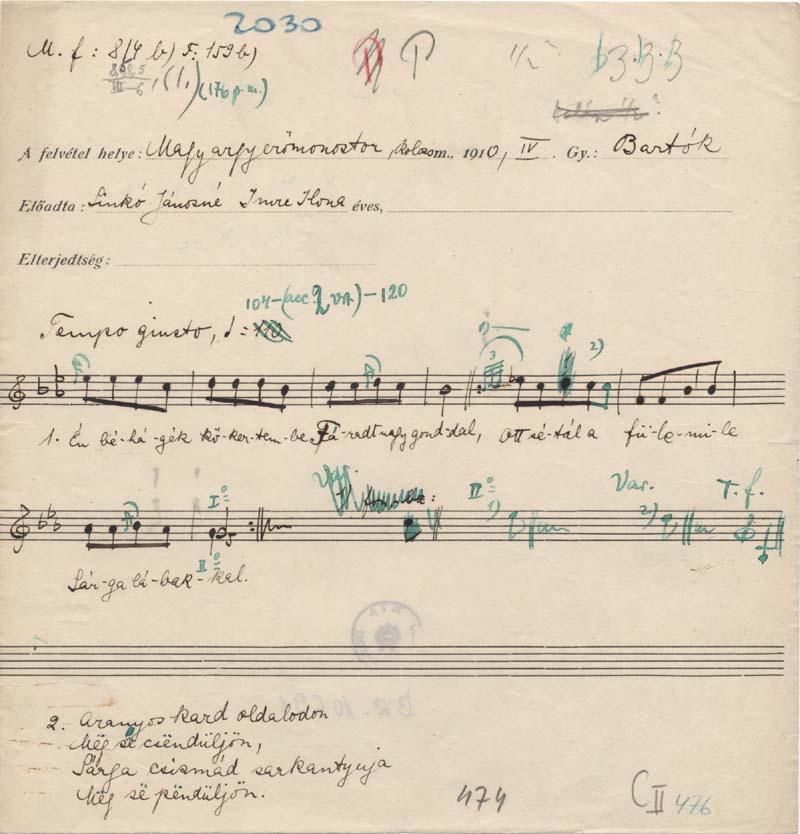 2030
M. f: 8/4 b) F. 159 b)
(1,)
(176 p.m.)
P P
b3·b3·3
A felvétel helye: Magyargyerőmonostor, Kolozsm., 1910, IV. Gy.: Bartók
Előadta: Sinkó Jánosné Imre Ilona éves,
Elterjedtség:
104-(acc. 2 VA)-120
Tempo giusto,
1) 3 2)
1. Én bé-há-gék kő-ker-tem-be Fá-radt nagy gond-dal, Ott sé-tál a fü-le-mi-le
I° II° 1) Var. 2) T. f.
Sár-ga lá-bak-kal.
II°
2. Aranyos kard oldalodon
Még së csëndüljön,
Sárga csizmád sarkantyuja
Még së pëndüljön.
474 C II 476